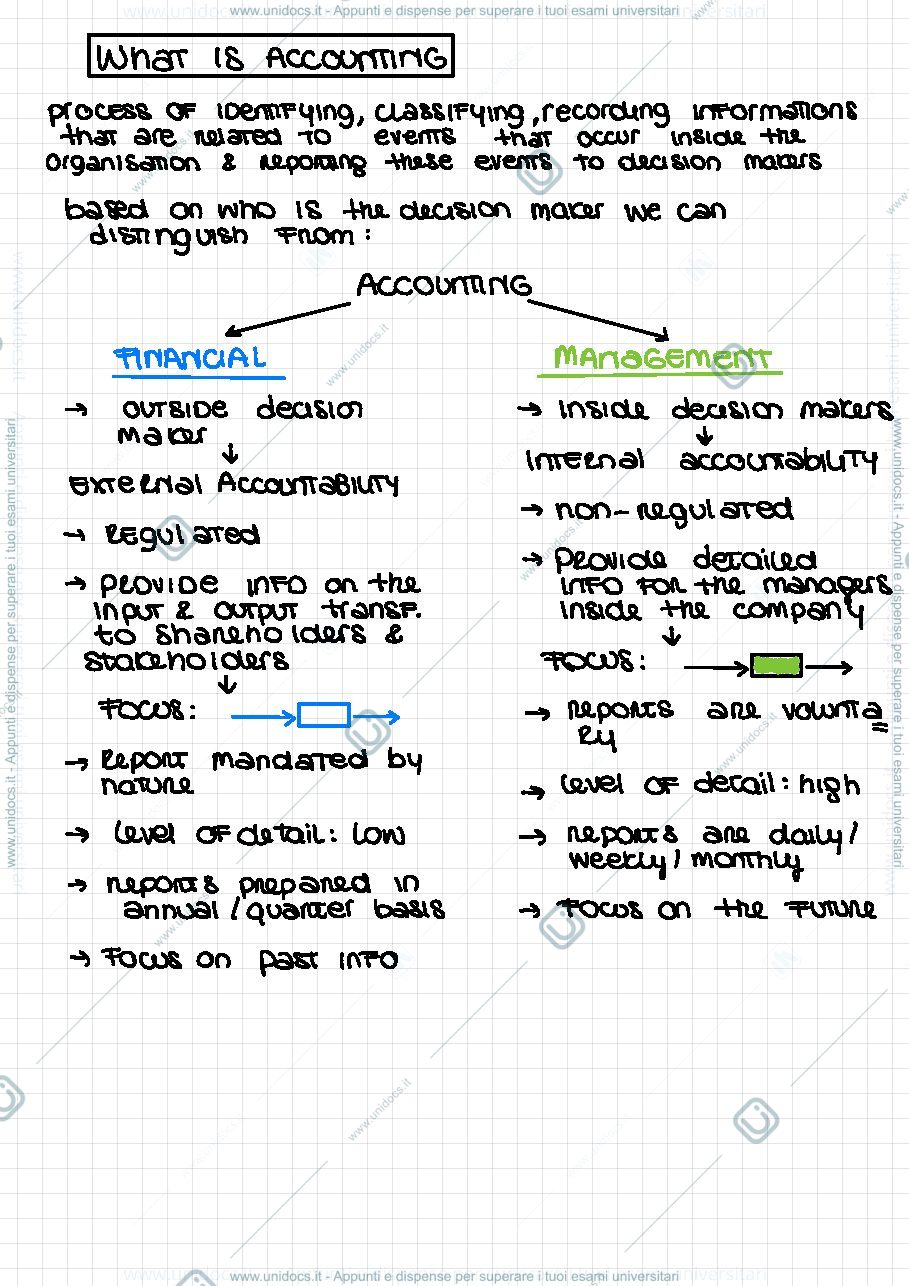 www.unidocs.it - Appunti e dispense per superare i tuoi esami universitari
What is Accounting
process of identifying, classifying, recording informations
that are related to events that occur inside the
organisation & reporting these events to decision makers
based on who is the decision maker we can
distinguish from:
ACCOUNTING
FINANCIAL
→ outside decision
maker
↓
External Accountability
→ Regulated
→ provide info on the
input & output transf.
to shareholders &
stakeholders
↓
Focus:
→ Report mandated by
nature
→ level of detail: low
→ reports prepared in
annual / quarter basis
→ Focus on past info
MANAGEMENT
→ inside decision makers
↓
Internal accountability
→ non-regulated
→ Provide detailed
info for the managers
inside the company
↓
Focus:
→ reports are volunta
ry
→ level of detail: high
→ reports are daily/
weekly/monthly
→ Focus on the future
www.unidocs.it - Appunti e dispense per superare i tuoi esami universitari
www.unidocs.it - Appunti e dispense per superare i tuoi esami universitari
www.unidocs.it
www.unidocs.it
www.unidocs.it
www.unidocs.it
www.unidocs.it
www.unidocs.it - Appunti e dispense per superare i tuoi esami universitari